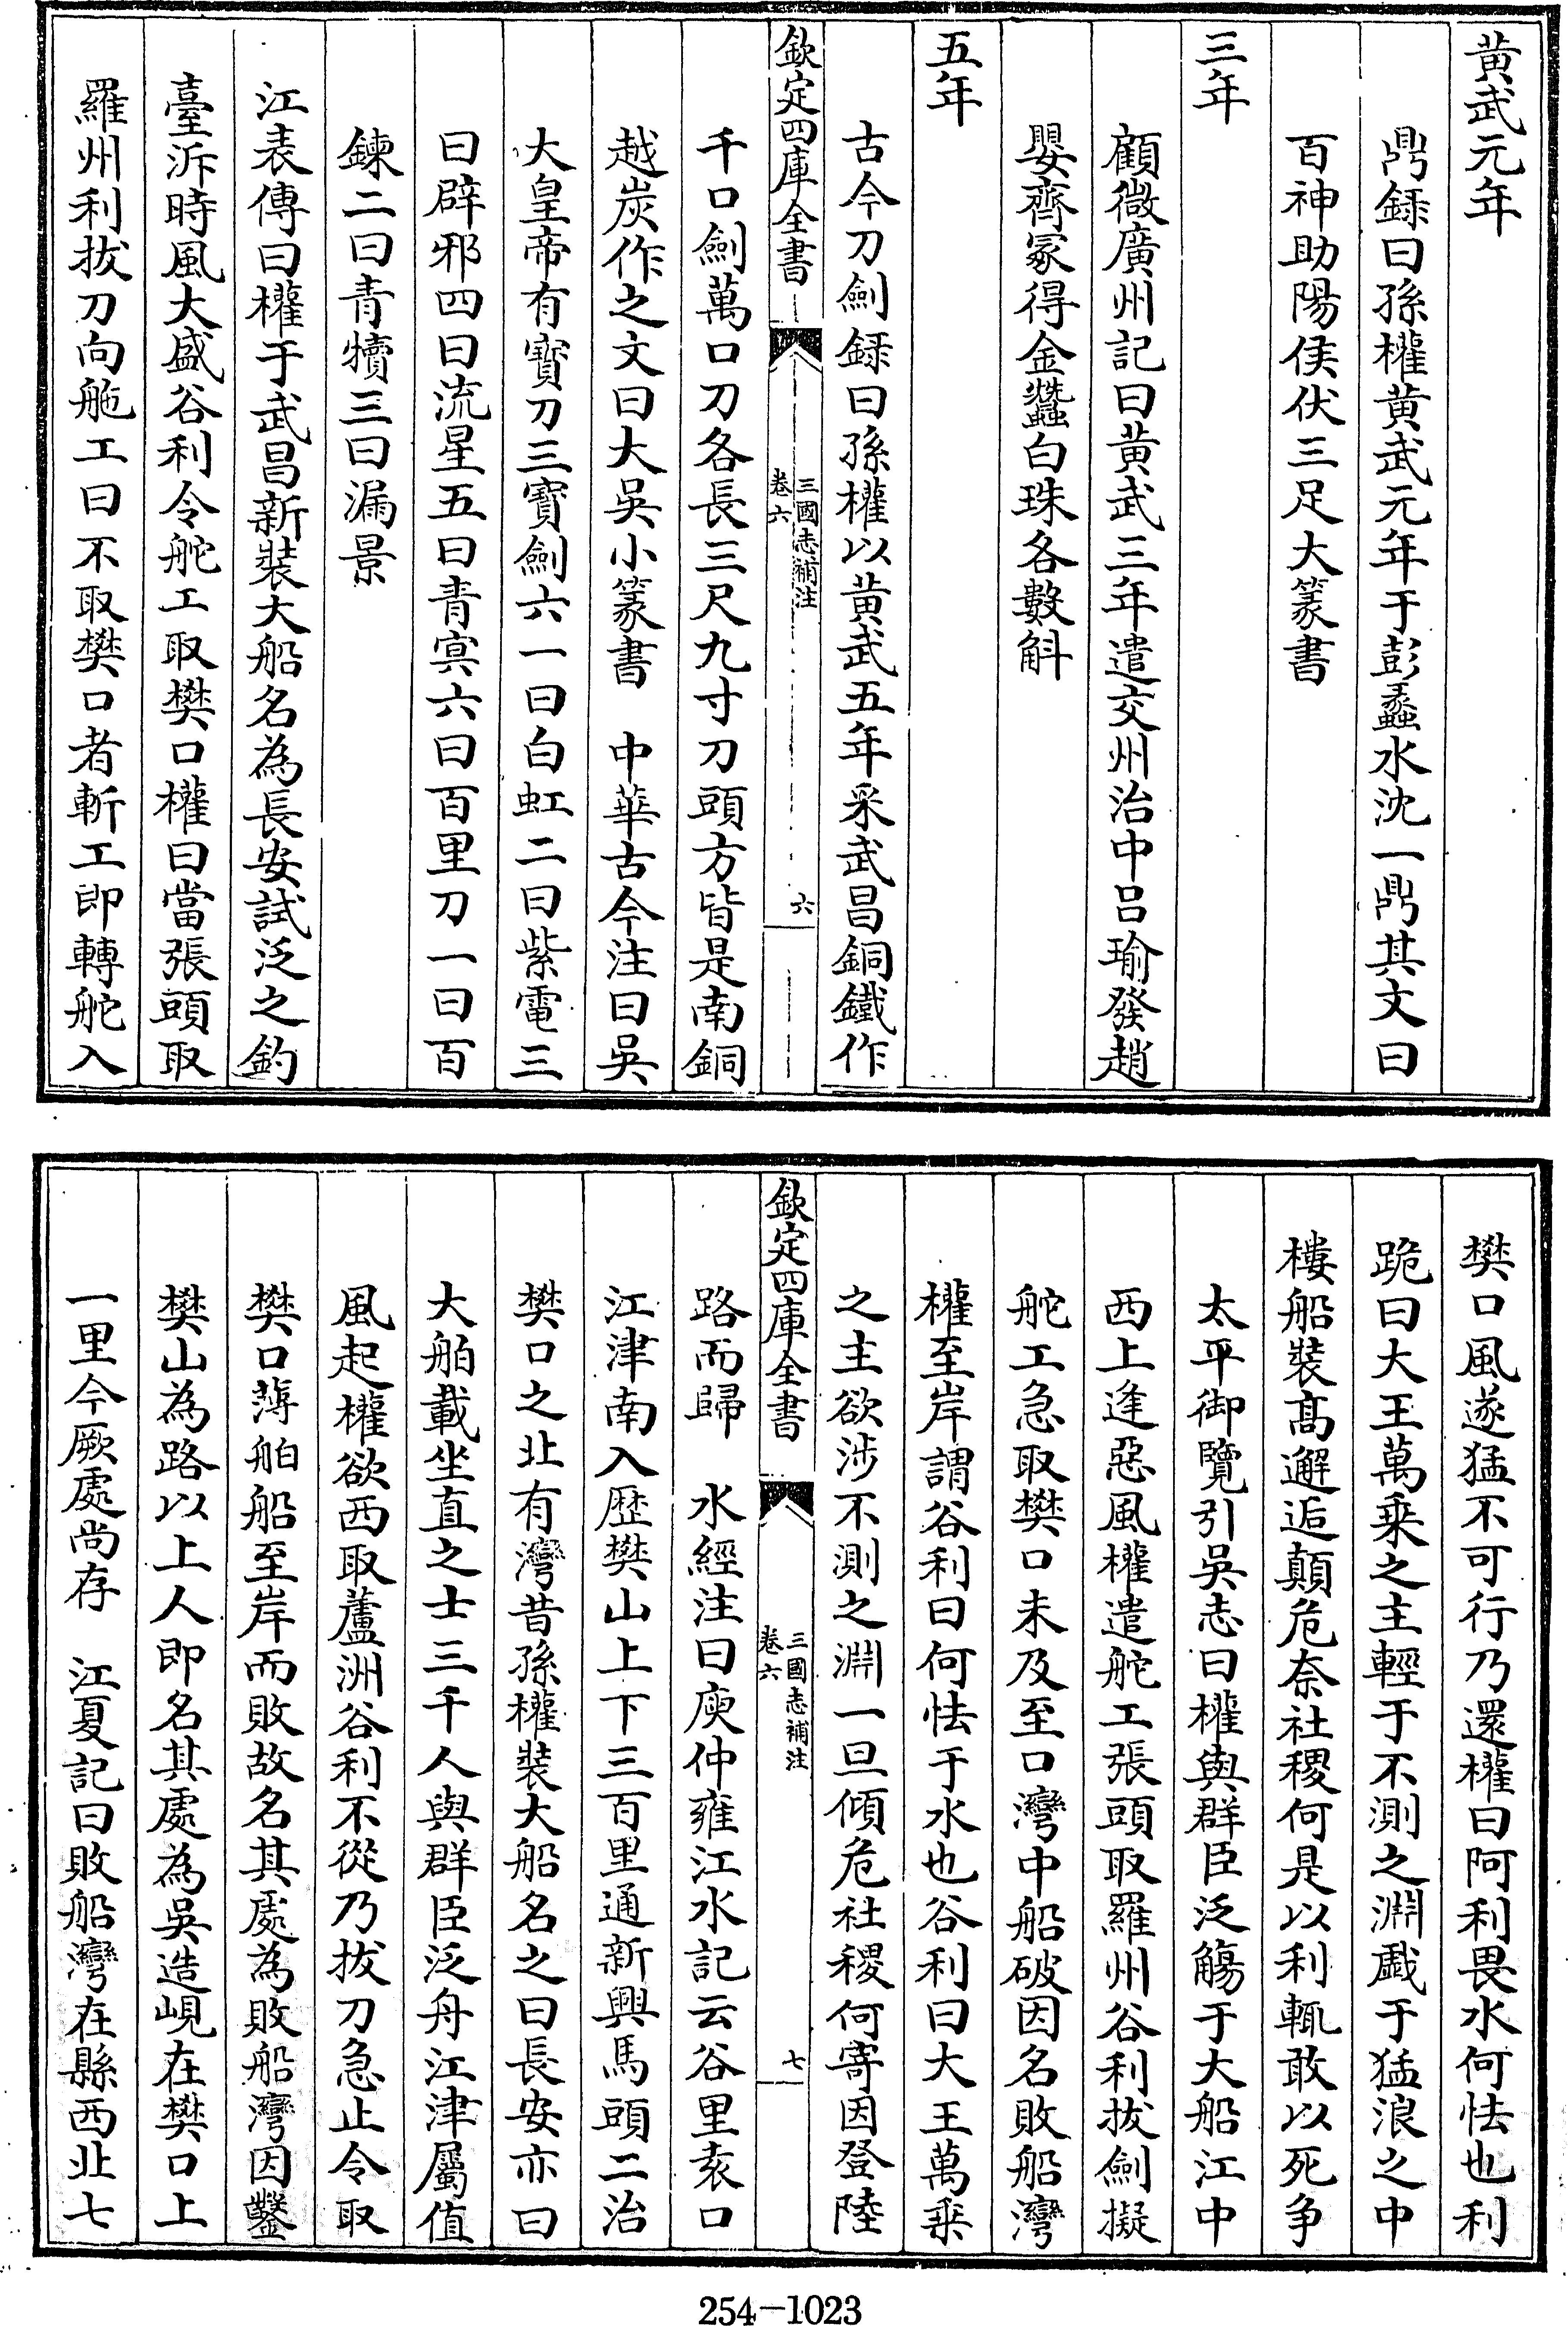 黄武元年
鼎録曰孫權黄武元年于彭蠡水沈一鼎其文曰
百神助陽侯伏三足大篆書
三年
顧微廣州記曰黄武三年遣交州治中吕瑜發趙
嬰齊冢得金蠶白珠各數斛
五年
古今刀劍録曰孫權以黄武五年采武昌銅鐵作
欽定四庫全書
三國志補注
卷六
六
千口劍萬口刀各長三尺九寸刀頭方皆是南銅
越炭作之文曰大吳小篆書 中華古今注曰吳
大皇帝有寳刀三寳劍六一曰白虹二曰紫電三
曰辟邪四曰流星五曰青冥六曰百里刀一曰百
鍊二曰青犢三曰漏景
江表傳曰權于武昌新裝大船名為長安試泛之釣
臺泝時風大盛谷利令舵工取樊口權曰當張頭取
羅州利拔刀向舵工曰不取樊口者斬工即轉舵入
樊口風遂猛不可行乃還權曰阿利畏水何怯也利
跪曰大王萬乗之主輕于不測之淵戲于猛浪之中
樓船裝髙邂逅顛危奈社稷何是以利輒敢以死争
太平御覽引吳志曰權與群臣泛觴于大船江中
西上逢惡風權遣舵工張頭取羅州谷利拔劍擬
舵工急取樊口未及至口灣中船破因名敗船灣
權至岸謂谷利曰何怯于水也谷利曰大王萬乗
之主欲涉不測之淵一旦傾危社稷何寄因登陸
欽定四庫全書
三國志補注
卷六
七
路而歸 水經注曰庾仲雍江水記云谷里袁口
江津南入歴樊山上下三百里通新興馬頭二治
樊口之北有灣昔孫權裝大船名之曰長安亦曰
大舶載坐直之士三千人與群臣泛舟江津屬值
風起權欲西取蘆洲谷利不從乃拔刀急止令取
樊口薄舶船至岸而敗故名其處為敗船灣因鑿
樊山為路以上人即名其處為吳造峴在樊口上
一里今厥處尚存 江夏記曰敗船灣在縣西北七
254-1023